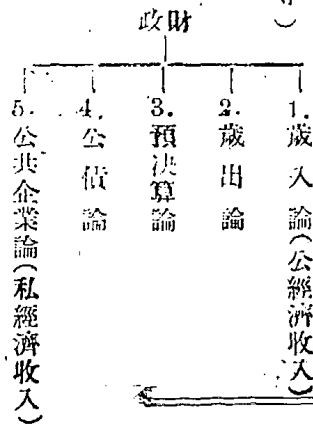 財政
1.歲入論(公經濟收入)
2.歲出論
3.預決算論
4.公債論
5.公共企業論(私經濟收入)